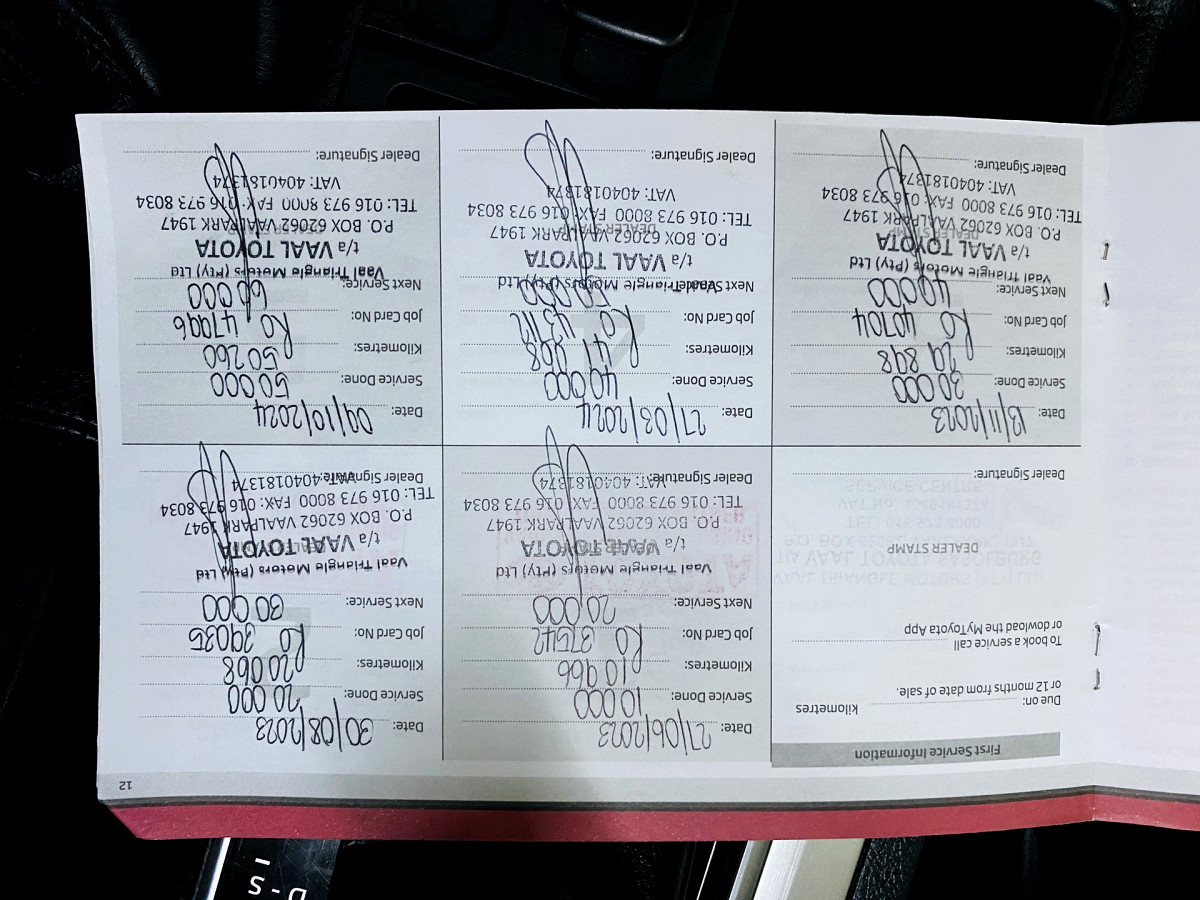 12
First Service Information
Due on: Kilometres
or 12 months from date of sale.
To book a service call
or dowload the MyToyota App
DEALER STAMP
Dealer Signature:
Date: 27/06/2023
Service Done: 10 000
Kilometres: 10 966
Job Card No: RO 37542
Next Service: 20 000
Vaal Triangle Motors (Pty) Ltd
t/a VAAL TOYOTA
P.O. BOX 62062 VAALPARK 1947
TEL: 016 973 8000 FAX: 016 973 8034
VAT: 4040181374
Dealer Signature:
Date: 30/08/2023
Service Done: 20 000
Kilometres: 20 068
Job Card No: RO 39035
Next Service: 30 000
Vaal Triangle Motors (Pty) Ltd
t/a VAAL TOYOTA
P.O. BOX 62062 VAALPARK 1947
TEL: 016 973 8000 FAX: 016 973 8034
VAT: 4040181374
Dealer Signature:
Date: 13/11/2023
Service Done: 30 000
Kilometres: 29 898
Job Card No: RO 40704
Next Service: 40 000
Vaal Triangle Motors (Pty) Ltd
t/a VAAL TOYOTA
DEALER STAMP
P.O. BOX 62062 VAALPARK 1947
TEL: 016 973 8000 FAX: 016 973 8034
VAT: 4040181374
Dealer Signature:
Date: 27/03/2024
Service Done: 40 000
Kilometres: 41
Job Card No: RO
Next Service: 50 000
Vaal Triangle Motors (Pty) Ltd
t/a VAAL TOYOTA
DEALER STAMP
P.O. BOX 62062 VAALPARK 1947
TEL: 016 973 8000 FAX: 016 973 8034
VAT: 4040181374
Dealer Signature:
Date: 09/10/2024
Service Done: 50 000
Kilometres: 50 260
Job Card No: RO 47996
Next Service: 60 000
Vaal Triangle Motors (Pty) Ltd
t/a VAAL TOYOTA
P.O. BOX 62062 VAALPARK 1947
TEL: 016 973 8000 FAX: 016 973 8034
VAT: 4040181374
Dealer Signature:
D-S